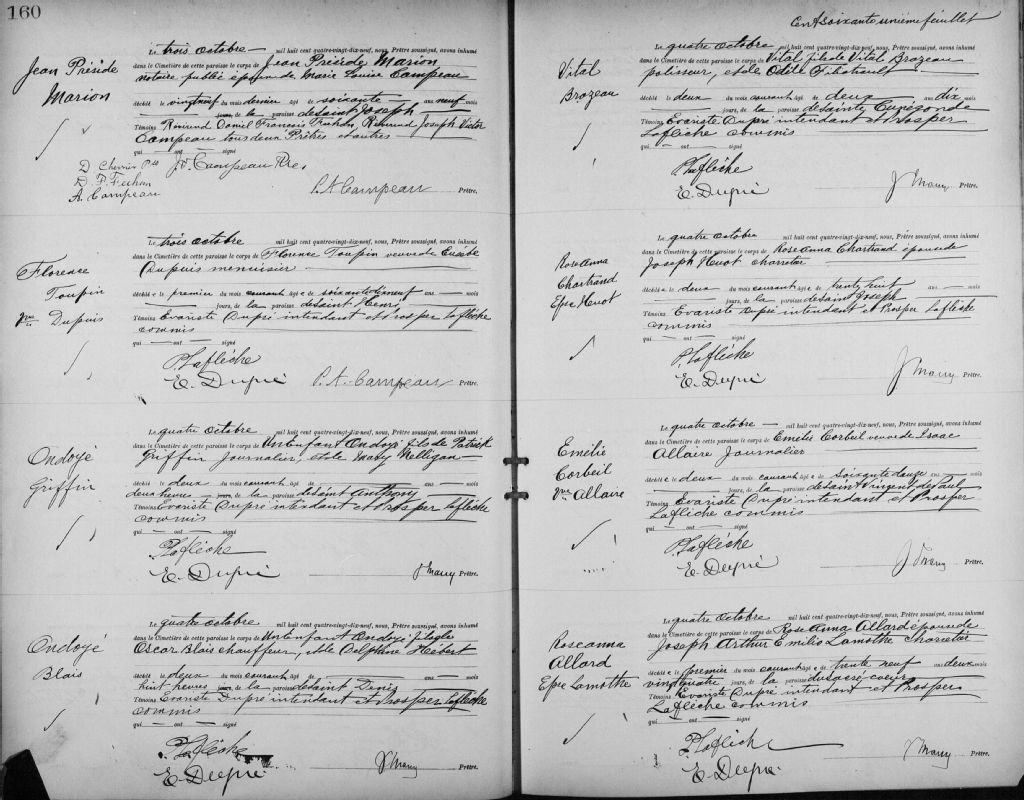 160
Jean Préside
Marion
Le trois octobre — mil huit cent quatre-vingt-dix-neuf, nous, Prêtre soussigné, avons inhumé
dans le Cimetière de cette paroisse le corps de Jean Préside Marion
notaire public époux de Marie Louise Campeau
décédé le vingtneuf du mois dernier âgé de soixante ans neuf mois
jours, de la paroisse de saint Joseph
Témoins Révérend Daniel Francois Révérend Joseph Victor
Campeau tous deux Prêtres et autres —
qui — ont — signé
D Chevrier Pte J.V. Campeau Ptre.
D. F.
A. Campeau P.A. Campeau Prêtre.
Florence
Toupin
Vve Dupuis
Le trois octobre mil huit cent quatre-vingt-dix-neuf, nous, Prêtre soussigné, avons inhumé
dans le Cimetière de cette paroisse le corps de Florence Toupin veuve de Eusèbe
Dupuis menuisier —
décédée le premier du mois courant âgée de ans — mois
jours, de la paroisse de saint Henri
Témoins Evariste Dupré intendant et Prosper Laflèche
commis
qui — ont — signé
P. Laflèche
E. Dupré P. A. Campeau Prêtre.
Ondoyé
Griffin
Le quatre octobre mil huit cent quatre-vingt-dix-neuf, nous, Prêtre soussigné, avons inhumé
dans le Cimetière de cette paroisse le corps de Un enfant Ondoyé fils de Patrick
Griffin Journalier, et de Mary Nelligan —
décédé le deux du mois courant âgé de ans — mois
deux heures jours, de la paroisse de saint Anthony
Témoins Evariste Dupré intendant et Prosper Laflèche
commis
qui — ont — signé
P. Laflèche
E. Dupré Prêtre.
Ondoyé
Blais
Le quatre octobre mil huit cent quatre-vingt-dix-neuf, nous, Prêtre soussigné, avons inhumé
dans le Cimetière de cette paroisse le corps de Un enfant Ondoyé fils de
Oscar Blais chauffeur, et de Delphine Hébert
décédé le deux du mois courant âgé de ans — mois
huit heures jours, de la paroisse de saint Denis
Témoins Evariste Dupré intendant et Prosper Laflèche
commis
qui — ont — signé
P. Laflèche
E. Dupré Prêtre.
Cent soixante unième feuillet
Vital
Brazeau
Le quatre octobre mil huit cent quatre-vingt-dix-neuf, nous, Prêtre soussigné, avons inhumé
dans le Cimetière de cette paroisse le corps de Vital fils de Vital Brazeau
polisseur, et de Odile
décédé le deux du mois courant âgé de deux ans dix mois
jours, de la paroisse de sainte Cunégonde
Témoins Evariste Dupré intendant et Prosper
Laflèche commis
qui — ont — signé
P. Laflèche
E. Dupré Prêtre.
Roseanna
Chartrand
Epse Huot
Le quatre octobre mil huit cent quatre-vingt-dix-neuf, nous, Prêtre soussigné, avons inhumé
dans le Cimetière de cette paroisse le corps de Roseanna Chartrand épouse de
Joseph Huot charretier
décédée le deux du mois courant âgée de trente huit ans — mois
jours, de la paroisse de saint Joseph
Témoins Evariste Dupré intendant et Prosper Laflèche
commis
qui — ont — signé
P. Laflèche
E. Dupré Prêtre.
Emélie
Corbeil
Vve Allaire
Le quatre octobre — mil huit cent quatre-vingt-dix-neuf, nous, Prêtre soussigné, avons inhumé
dans le Cimetière de cette paroisse le corps de Emélie Corbeil veuve de Isaac
Allaire Journalier
décédée le deux du mois courant âgée de soixante douze ans — mois
jours, de la paroisse de saint Vincent de Paul
Témoins Evariste Dupré intendant et Prosper
Laflèche commis
qui — ont — signé
P. Laflèche
E. Dupré Prêtre.
Roseanna
Allard
Epse Lamothe
Le quatre octobre mil huit cent quatre-vingt-dix-neuf, nous, Prêtre soussigné, avons inhumé
dans le Cimetière de cette paroisse le corps de Rose Anna Allard épouse de
Joseph Arthur Emilis Lamothe Charretier
décédée le premier du mois courant âgée de trente neuf ans deux mois
vingtquatre jours, de la paroisse du sacré coeur
Témoins Evariste Dupré intendant et Prosper
Laflèche commis
qui — ont — signé
P. Laflèche
E. Dupré Prêtre.